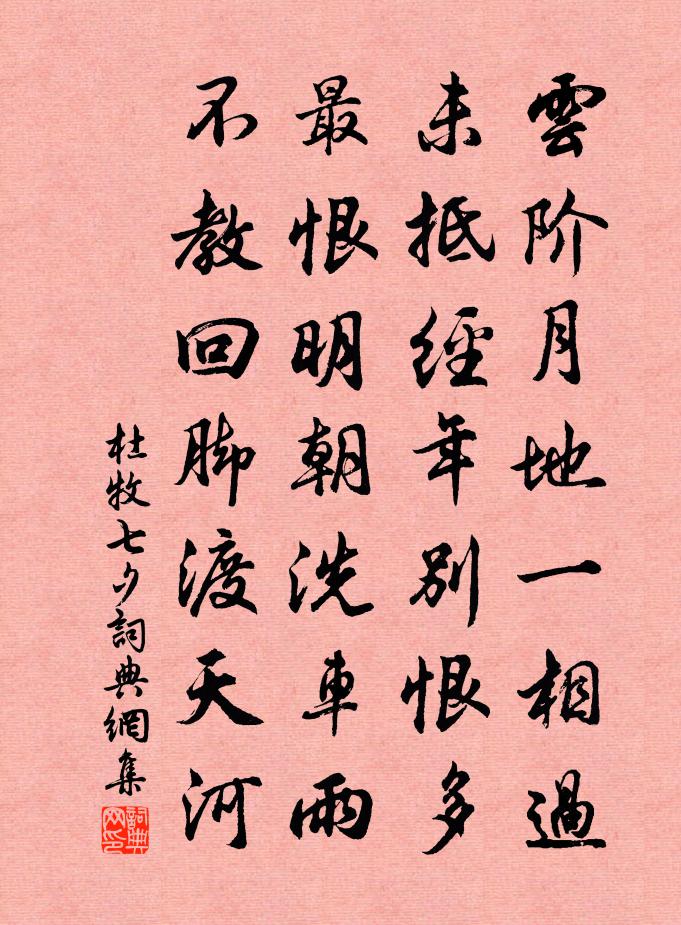 雲阶月地一相過
未抵經年別恨多
最恨明朝洗車雨
不教回脚渡天河
杜牧七夕詞典網集
詞典网印